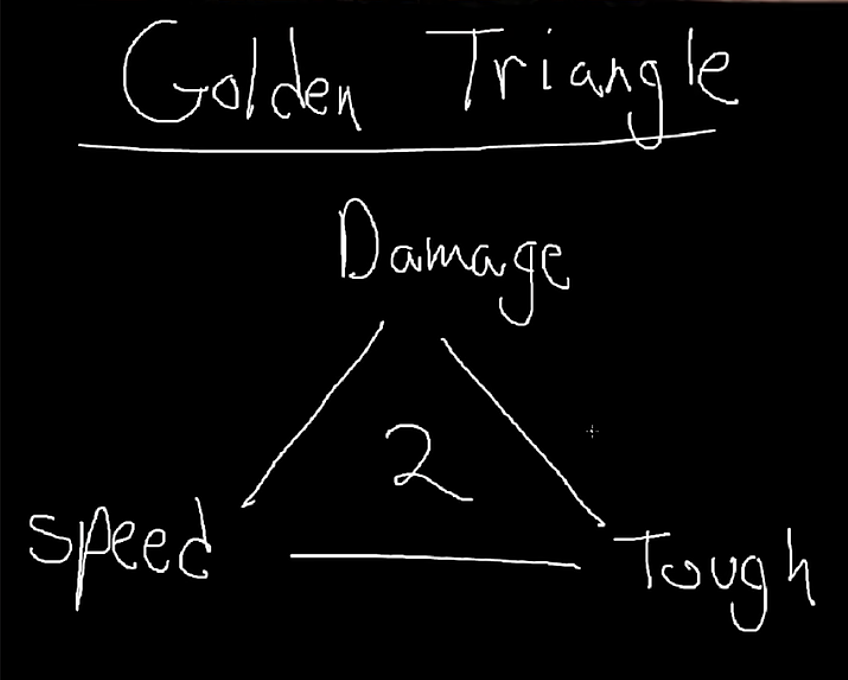 Golden Triangle
Damage
2
speed
Tough